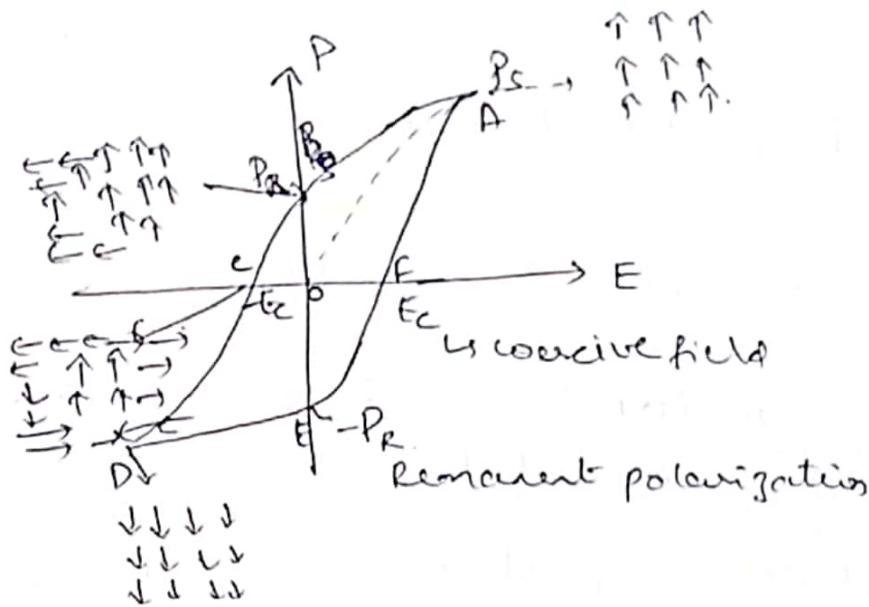 P
Ps
A
B
PR
C
-Ec
O
F
Ec
E
↳ coercive field
E
-PR
Remanent polarization
D